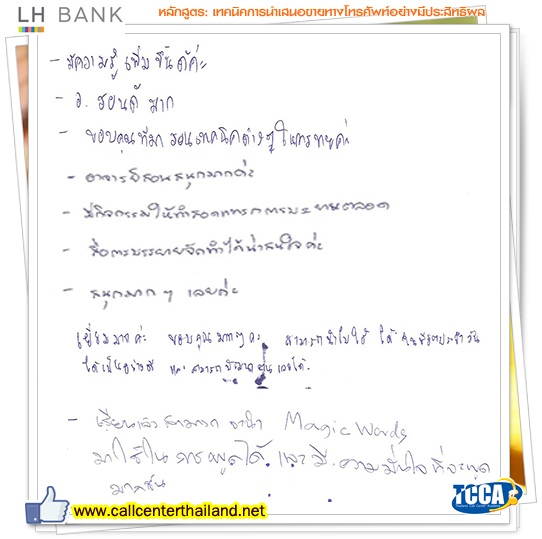 LH BANK
หลักสูตร: เทคนิคการนำเสนอขายทางโทรศัพท์อย่างมีประสิทธิผล
- มีความรู้ เพิ่มขึ้นค่ะ
- อ. สอนดี มาก
- ขอบคุณที่มา สอนเทคนิคต่างๆ ในการขายค่ะ
- อาจารย์สอนสนุกมากค่ะ
- มีกิจกรรมให้ทำตลอดการบรรยายตลอด
- สื่อการบรรยายจัดทำได้น่าสนใจค่ะ
- สนุกมาก ๆ เลยค่ะ
เยี่ยมมากค่ะ ขอบคุณมากๆค่ะ สามารถนำไปใช้ ได้ ในชีวิตประจำวัน
ได้เป็นอย่างดี และ สามารถ
- เรียนแล้วสามารถ เอานำ Magic Words
มาใช้ใน การพูดได้. และ มี. ความมั่นใจ ที่จะพูด
มากขึ้น
www.callcenterthailand.net
TCCA